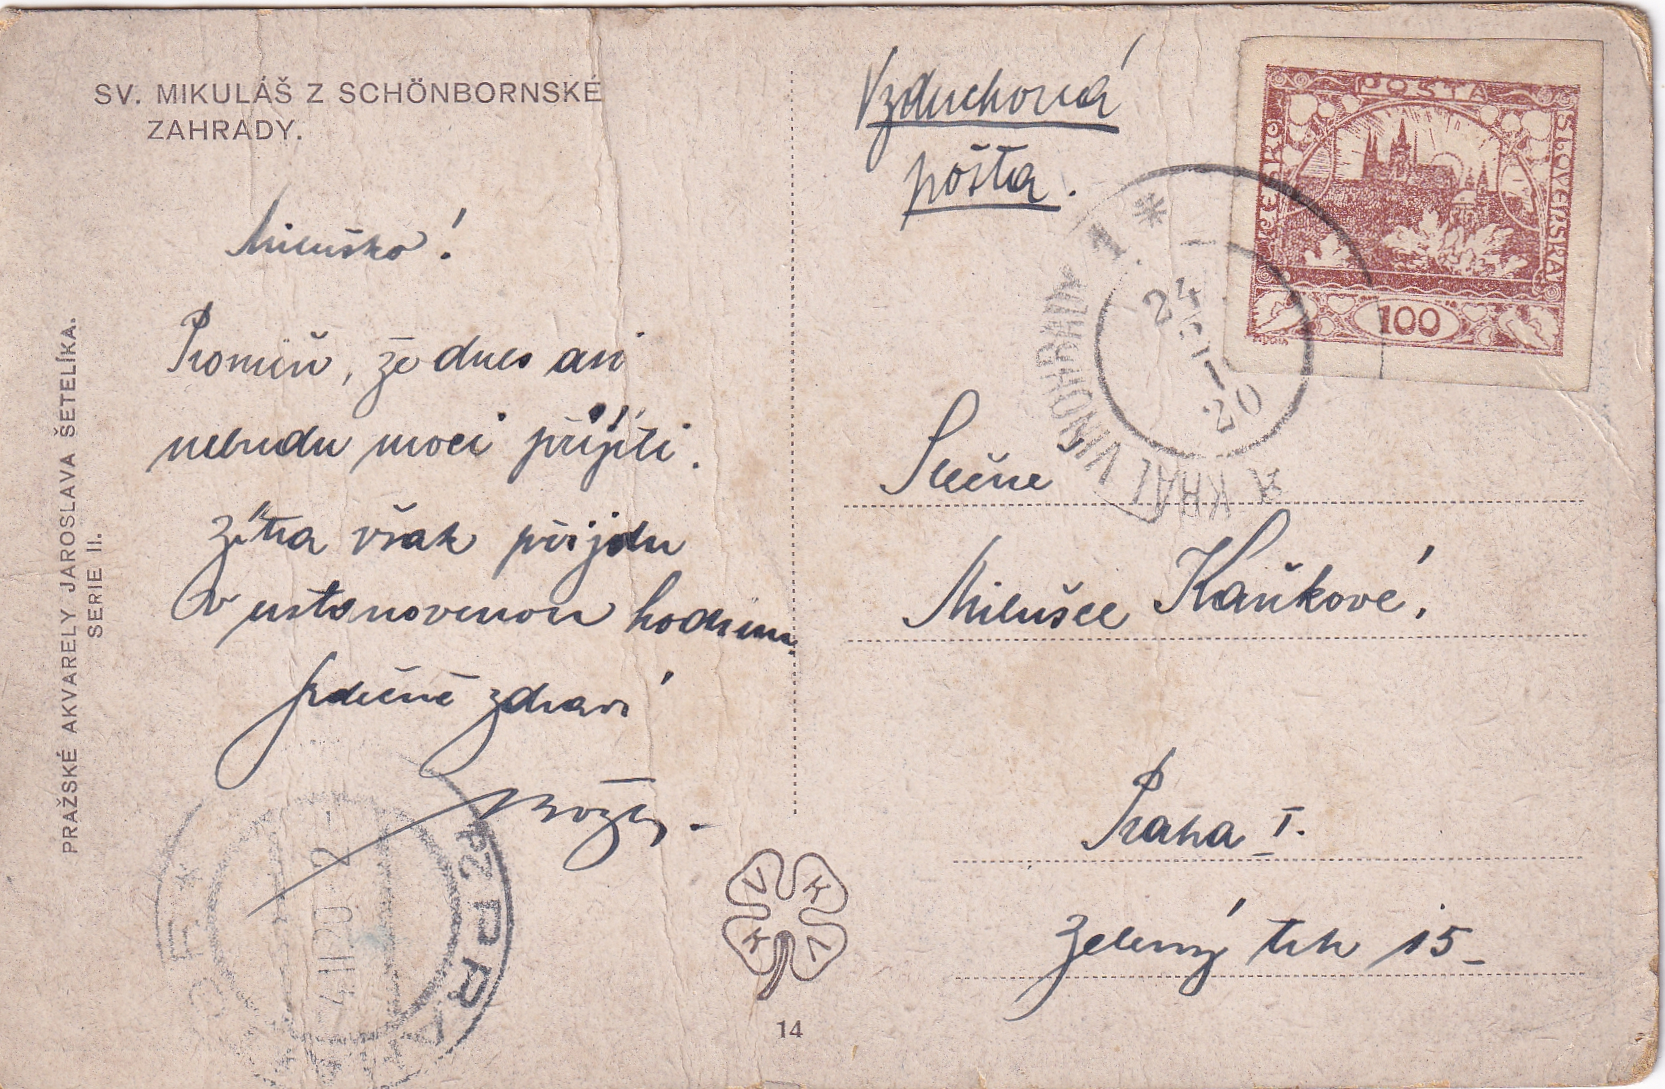 SV. MIKULÁŠ Z SCHÖNBORNSKÉ
ZAHRADY.
PRAŽSKÉ AKVARELY JAROSLAVA ŠETELÍKA.
SERIE II.
Miluško!
Promiň, že dnes asi
nebudu moci přijíti.
Zítra však přijdu
v ustanovenou hodinu.
Srdečně zdraví
Vzduchová
pošta.
POŠTA
ČESKO
SLOVENSKÁ
100
KRÁL. VINOHRADY 1
24
20
Slečně
Milušce Kaňkové.
Praha I.
Zelený trh 15
V K
K V
14